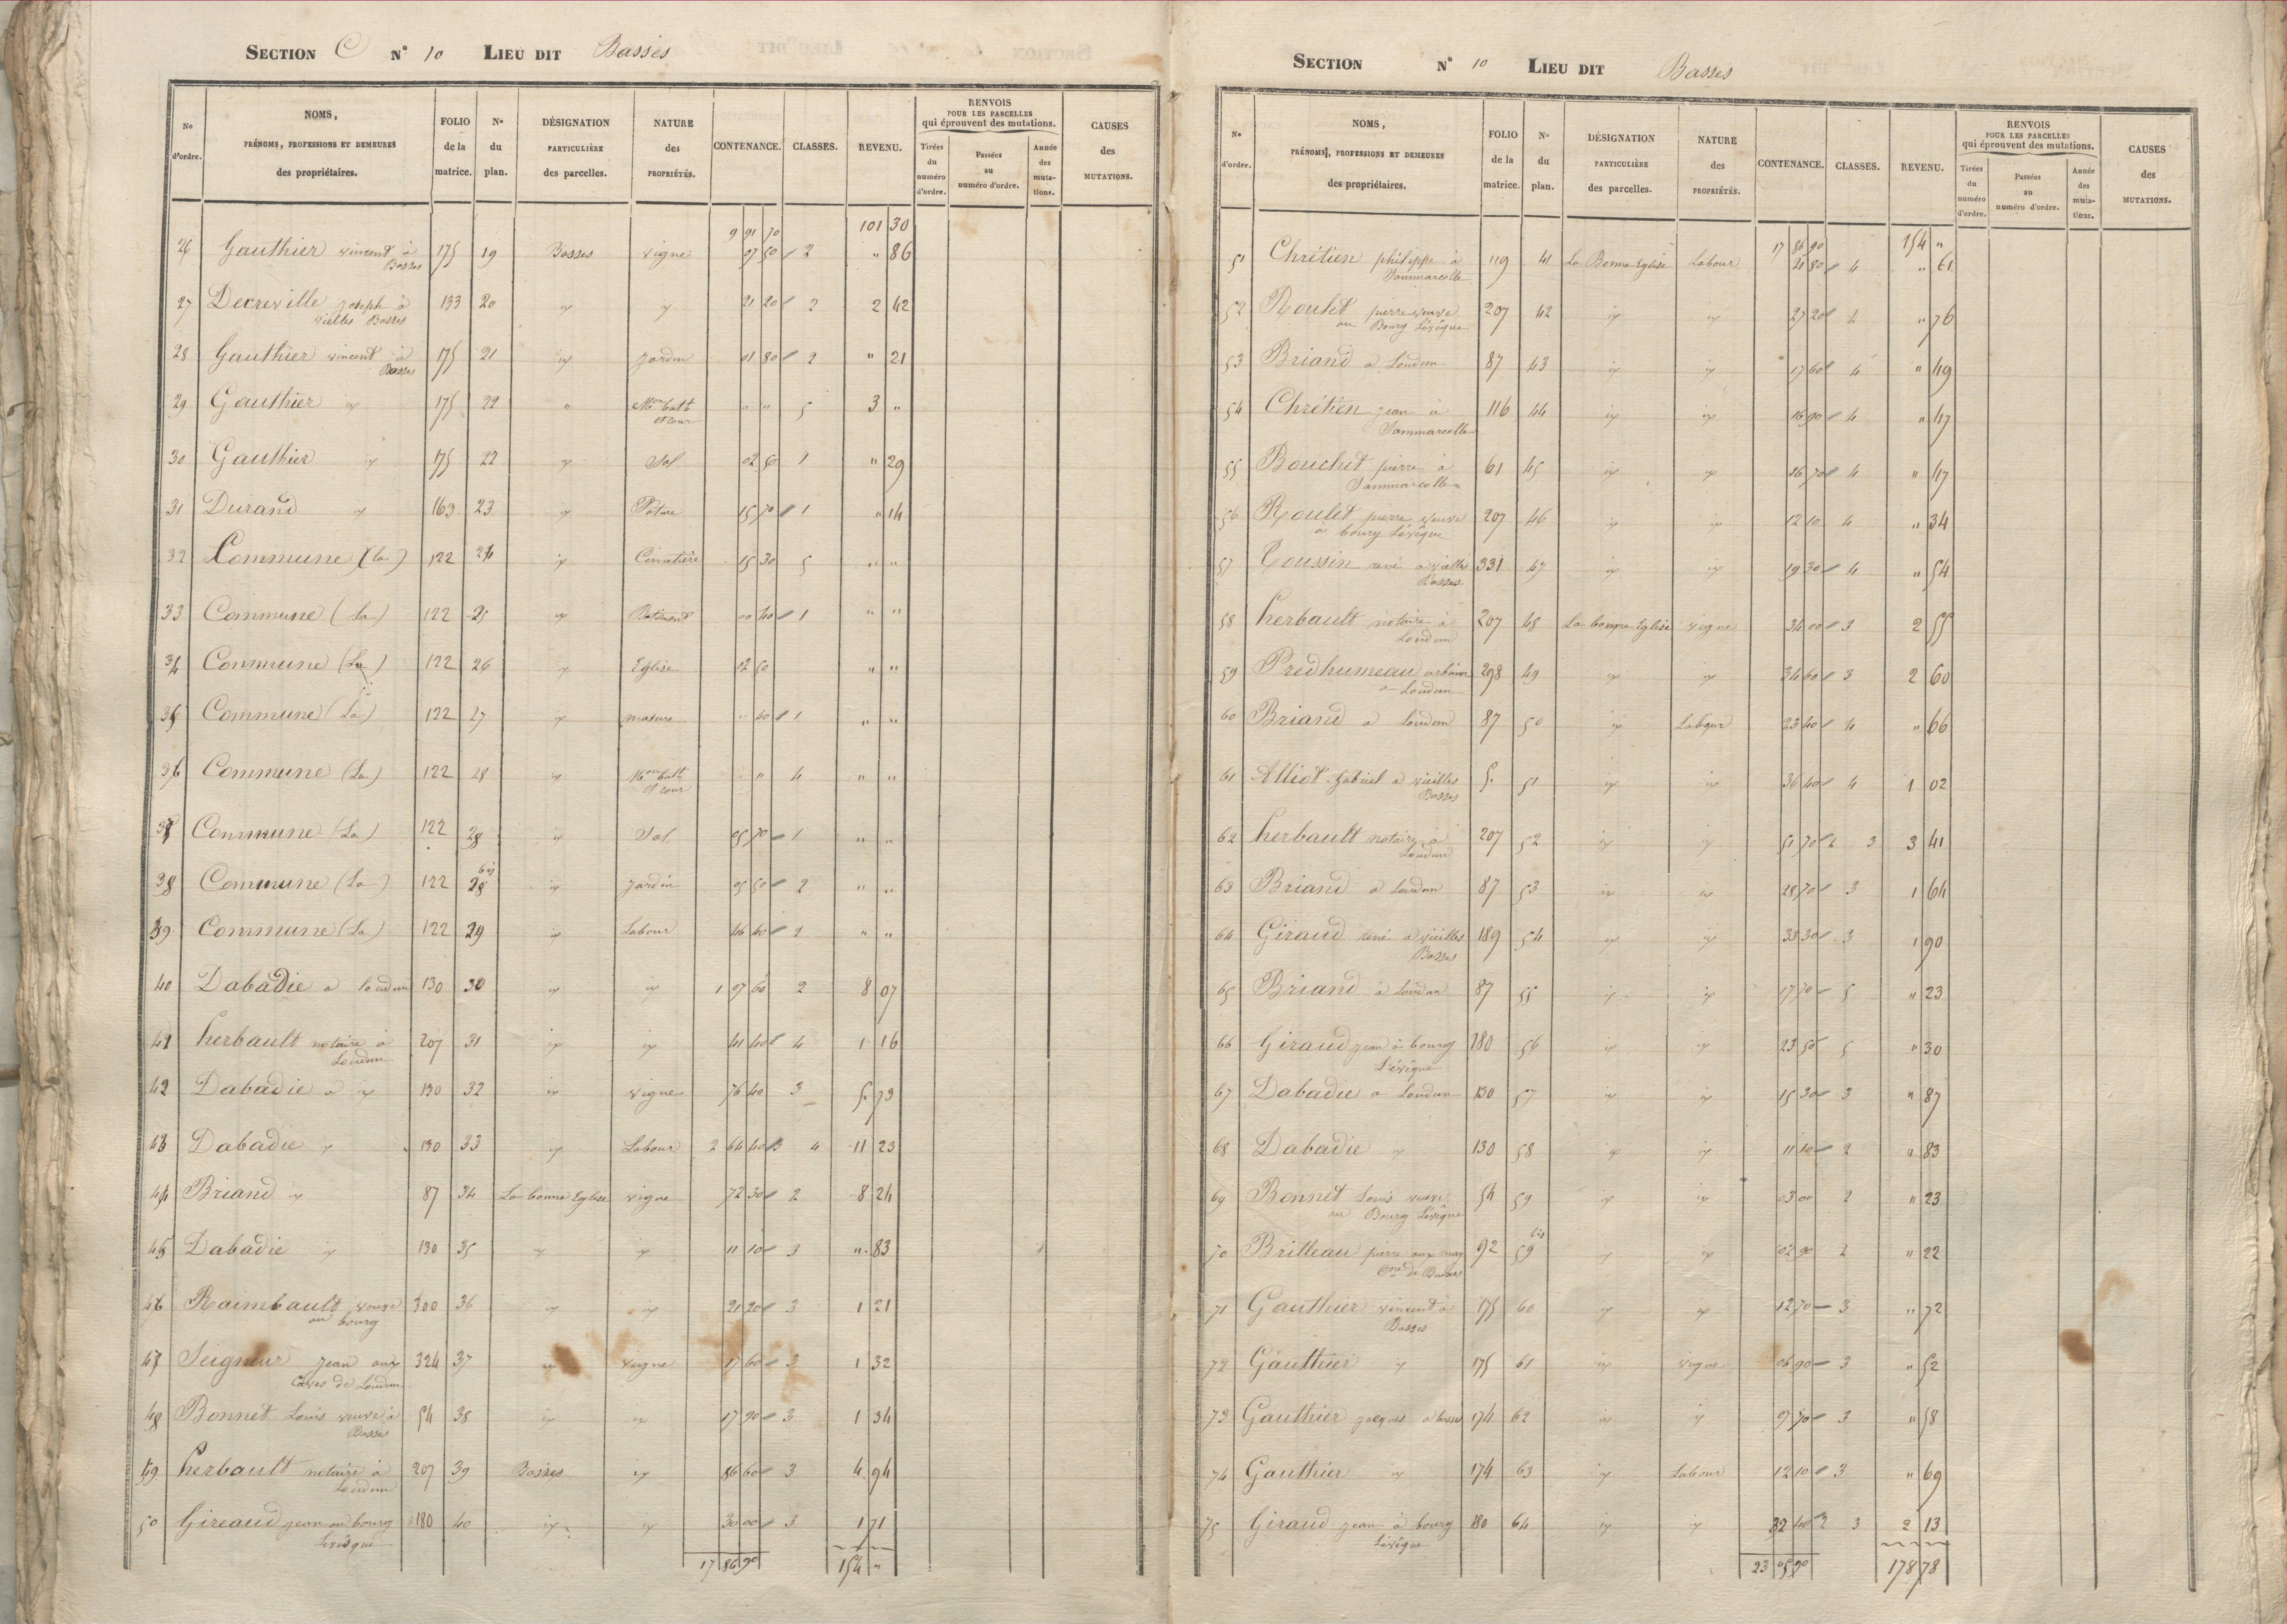 SECTION C N° 10 LIEU DIT Basses
No d'ordre. NOMS, PRÉNOMS, PROFESSIONS ET DEMEURES des propriétaires. FOLIO de la matrice. N° du plan. DÉSIGNATION PARTICULIÈRE des parcelles. NATURE des PROPRIÉTÉS. CONTENANCE. CLASSES. REVENU. RENVOIS POUR LES PARCELLES qui éprouvent des mutations. Tirées du numéro d'ordre. Passées au numéro d'ordre. Année des muta-tions. CAUSES des MUTATIONS.
9 91 70 101 30
26 Gauthier vincent à Basses 175 19 Basses vigne 07 50 2 " 86
27 Decreville joseph à vielles Basses 133 20 id id 21 20 2 2 42
28 Gauthier vincent à Basses 175 21 id jardin 01 80 2 " 21
29 Gauthier id 175 22 " Mon batt et cour " " 5 3 "
30 Gauthier id 175 22 id Sol 02 50 1 " 29
31 Durand id 163 23 id Pature 15 70 1 " 14
32 Commune (la) 122 24 id Cimetière 15 30 5 " "
33 Commune (La) 122 25 id Batiment 00 40 1 " "
34 Commune (La) 122 26 id Eglise 02 50 " "
35 Commune (La) 122 27 id masure " 60 1 " "
36 Commune (La) 122 28 id Mon batt et cour " 4 " "
37 Commune (La) 122 28 id Sol 05 70 1 " "
38 Commune (La) 122 28 bis id jardin 05 50 2 " "
39 Commune (La) 122 29 id Labour 46 40 2 " "
40 Dabadie a loudun 130 30 id id 1 07 60 2 8 07
41 herbault notaire à Loudun 207 31 id id 41 40 4 1 16
42 Dabadie a id 130 32 id vigne 76 40 3 5 73
43 Dabadie id 130 33 id Labour 2 64 40 3 4 11 23
44 Briand id 87 34 La bonne Eglise vigne 72 30 2 8 24
45 Dabadie id 130 35 id id 11 10 3 " 83
46 Raimbault veuve au bourg 300 36 id id 21 20 3 1 21
47 Seigneur jean aux Caves de Loudun 324 37 id vigne 17 60 3 1 32
48 Bonnet Louis veuve à Basses 54 38 id id 17 90 3 1 34
49 herbault notaire à Loudun 207 39 Basses id 86 60 3 4 94
50 Gireaud jean au bourg Lévêque 180 40 id id 30 00 3 1 71
17 86 90 154 "
SECTION N° 10 LIEU DIT Basses
N° d'ordre. NOMS, PRÉNOMS, PROFESSIONS ET DEMEURES des propriétaires. FOLIO de la matrice. N° du plan. DÉSIGNATION PARTICULIÈRE des parcelles. NATURE des PROPRIÉTÉS. CONTENANCE. CLASSES. REVENU. RENVOIS POUR LES PARCELLES qui éprouvent des mutations. Tirées du numéro d'ordre. Passées au numéro d'ordre. Année des muta-tions. CAUSES des MUTATIONS.
17 86 90 154 "
51 Chrétien philippe à Sammarcolle 119 41 La Bonne Eglise Labour 21 80 4 " 61
52 Roulet pierre veuve au Bourg Lévêque 207 42 id id 27 20 4 " 76
53 Briand a Loudun 87 43 id id 17 60 4 " 49
54 Chrétien jean à Sammarcolle 116 44 id id 16 90 4 " 47
55 Bouchet pierre à Sammarcolle 61 45 id id 16 70 4 " 47
56 Roulet pierre veuve à bourg Lévêque 207 46 id id 12 10 4 " 34
57 Toussin rené a vielles Basses 331 47 id id 19 30 4 " 54
58 herbault notaire à Loudun 207 48 La bonne Eglise vigne 34 00 3 2 55
59 Predhumeau urbain a Loudun 298 49 id id 34 60 3 2 60
60 Briand a loudun 87 50 id Labour 23 40 4 " 66
61 Alliot gabriel a vieilles Basses 5 51 id id 36 40 4 1 02
62 herbault notaire à Loudun 207 52 id id 51 70 2 3 3 41
63 Briand a loudun 87 53 id id 28 70 3 1 64
64 Giraud rené a vieilles Basses 189 54 id id 33 30 3 1 90
65 Briand a loudun 87 55 id id 17 70 5 " 23
66 Giraud jean à bourg L'évêque 180 56 id id 23 50 5 " 30
67 Dabadie a Loudun 130 57 id id 15 30 3 " 87
68 Dabadie id 130 58 id id 11 10 2 " 83
69 Bonnet Louis veuve au Bourg Lévêque 54 59 id id 03 00 2 " 23
70 Britteau pierre aux Cne de Basses 92 59 bis id id 02 90 2 " 22
71 Gauthier vincent à Basses 175 60 id id 12 70 3 " 72
72 Gauthier id 175 61 id vigne 06 90 3 " 52
73 Gauthier jacques a basses 174 62 id id 07 70 3 " 58
74 Gauthier id 174 63 id Labour 12 10 3 " 69
75 Giraud jean à bourg Lévêque 180 64 id id 32 40 2 3 2 13
23 05 90 178 78